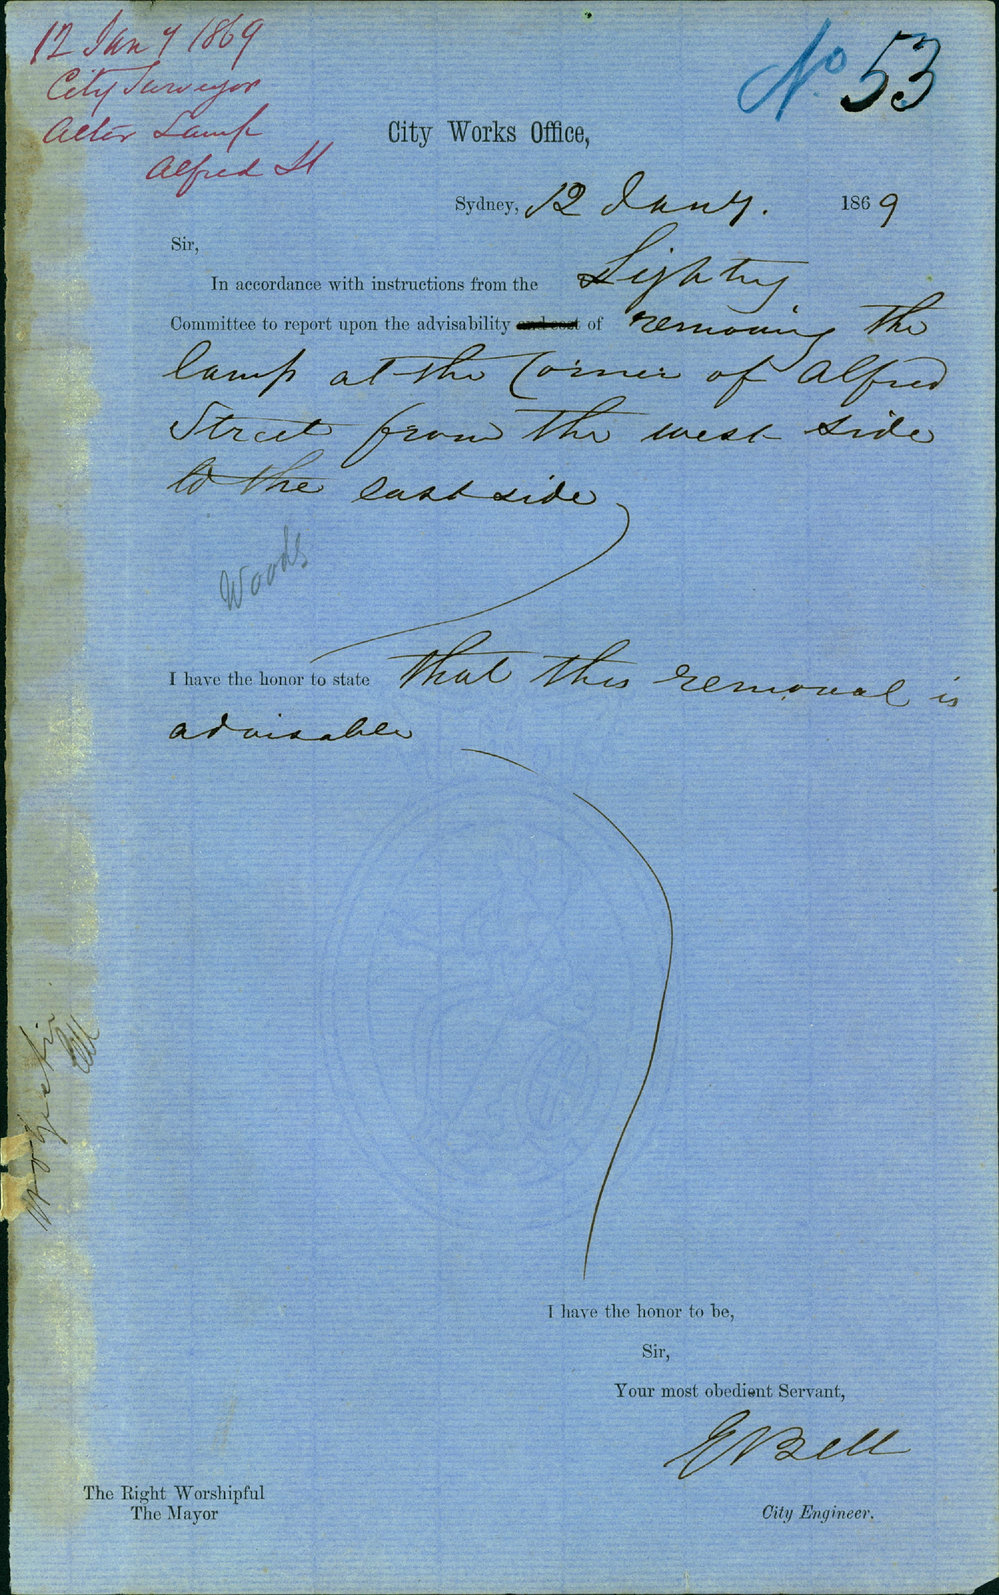 12 Jany 1869
City Surveyor
Alter Lamp
Alfred St
No 53
City Works Office,
Sydney, 12 Jany. 1869
Sir,
In accordance with instructions from the Lighting
Committee to report upon the advisability and cost of removing the
lamp at the Corner of Alfred
Street from the west side
to the east side
Woods
I have the honor to state that this removal is
advisable
I have the honor to be,
Sir,
Your most obedient Servant,
E Bell
The Right Worshipful
The Mayor
City Engineer.